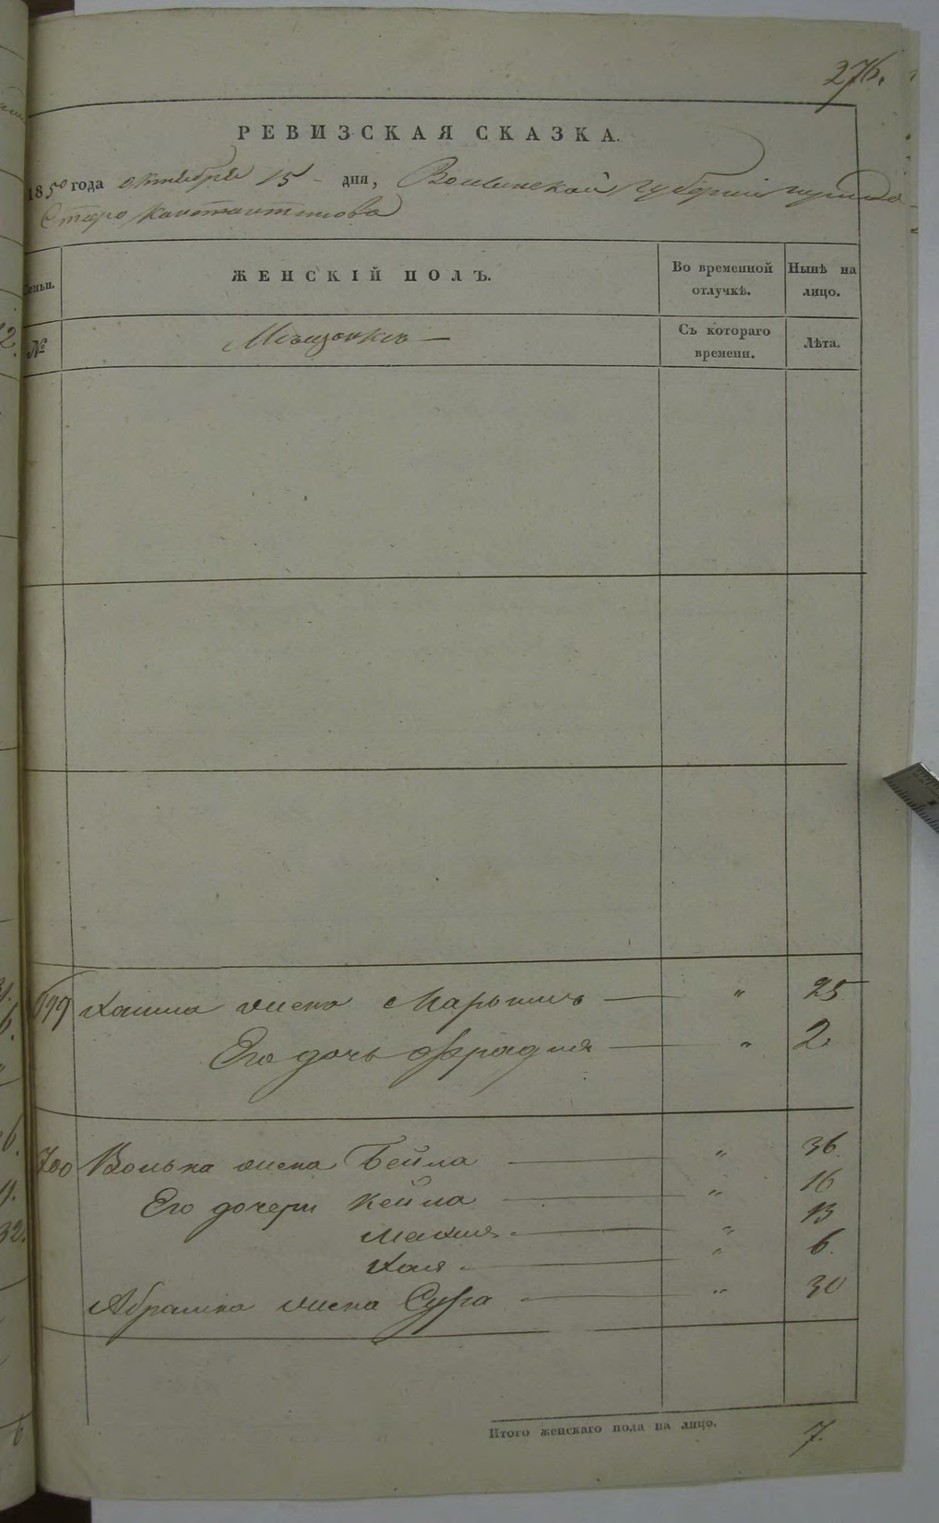 276.
РЕВИЗСКАЯ СКАЗКА.
1850 года октября 15 дня, Волынской Губернии города
Старо Константинова
Семьи. ЖЕНСКІЙ ПОЛЪ. Во временной отлучкѣ. Нынѣ на лицо.
№ Мещанъ Съ котораго времени. Лѣта.
699 Хаима жена Марьямъ — " 25
Его дочь Фрадля — " 2
700 Волька жена Бейла — " 36
Его дочери Кейла — " 16
Махля — " 13
Хая — " 6
Абрамка жена Сура — " 30
Итого женскаго пола на лицо. 7.